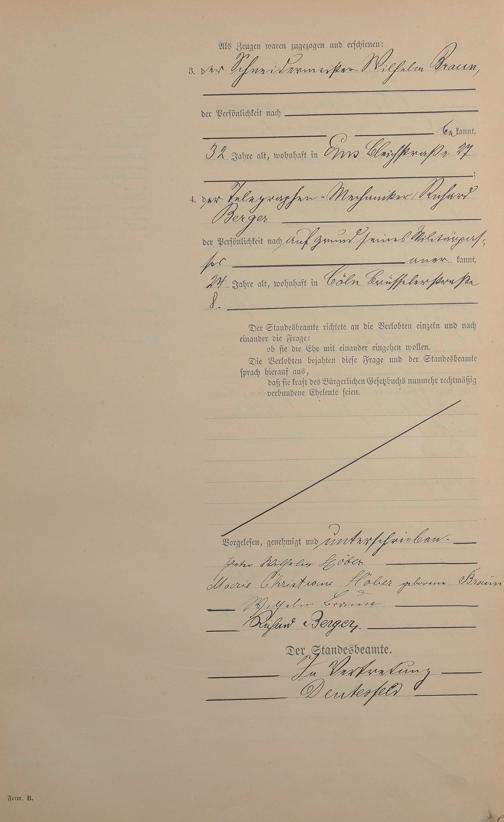 Als Zeugen waren zugezogen und erschienen:
3. der Schneidermeister Wilhelm Braun,
der Persönlichkeit nach
be kannt,
32 Jahre alt, wohnhaft in Ems Bleichstraße 27
;
4. der Telegraphen-Mechaniker Richard
Berger
der Persönlichkeit nach auf Grund seines Militärpas-
ses aner kannt,
27 Jahre alt, wohnhaft in Cöln Brüsselerstraße
8.
Der Standesbeamte richtete an die Verlobten einzeln und nach
einander die Frage:
ob sie die Ehe mit einander eingehen wollen.
Die Verlobten bejahten diese Frage und der Standesbeamte
sprach hierauf aus,
daß sie kraft des Bürgerlichen Gesetzbuchs nunmehr rechtmäßig
verbundene Eheleute seien.
Vorgelesen, genehmigt und unterschrieben.
Peter Wilhelm Höber
Christiane Höber geborene Braun
Wilhelm Braun
Richard Berger.
Der Standesbeamte.
In Vertretung
Deutesfeld
Form. B.